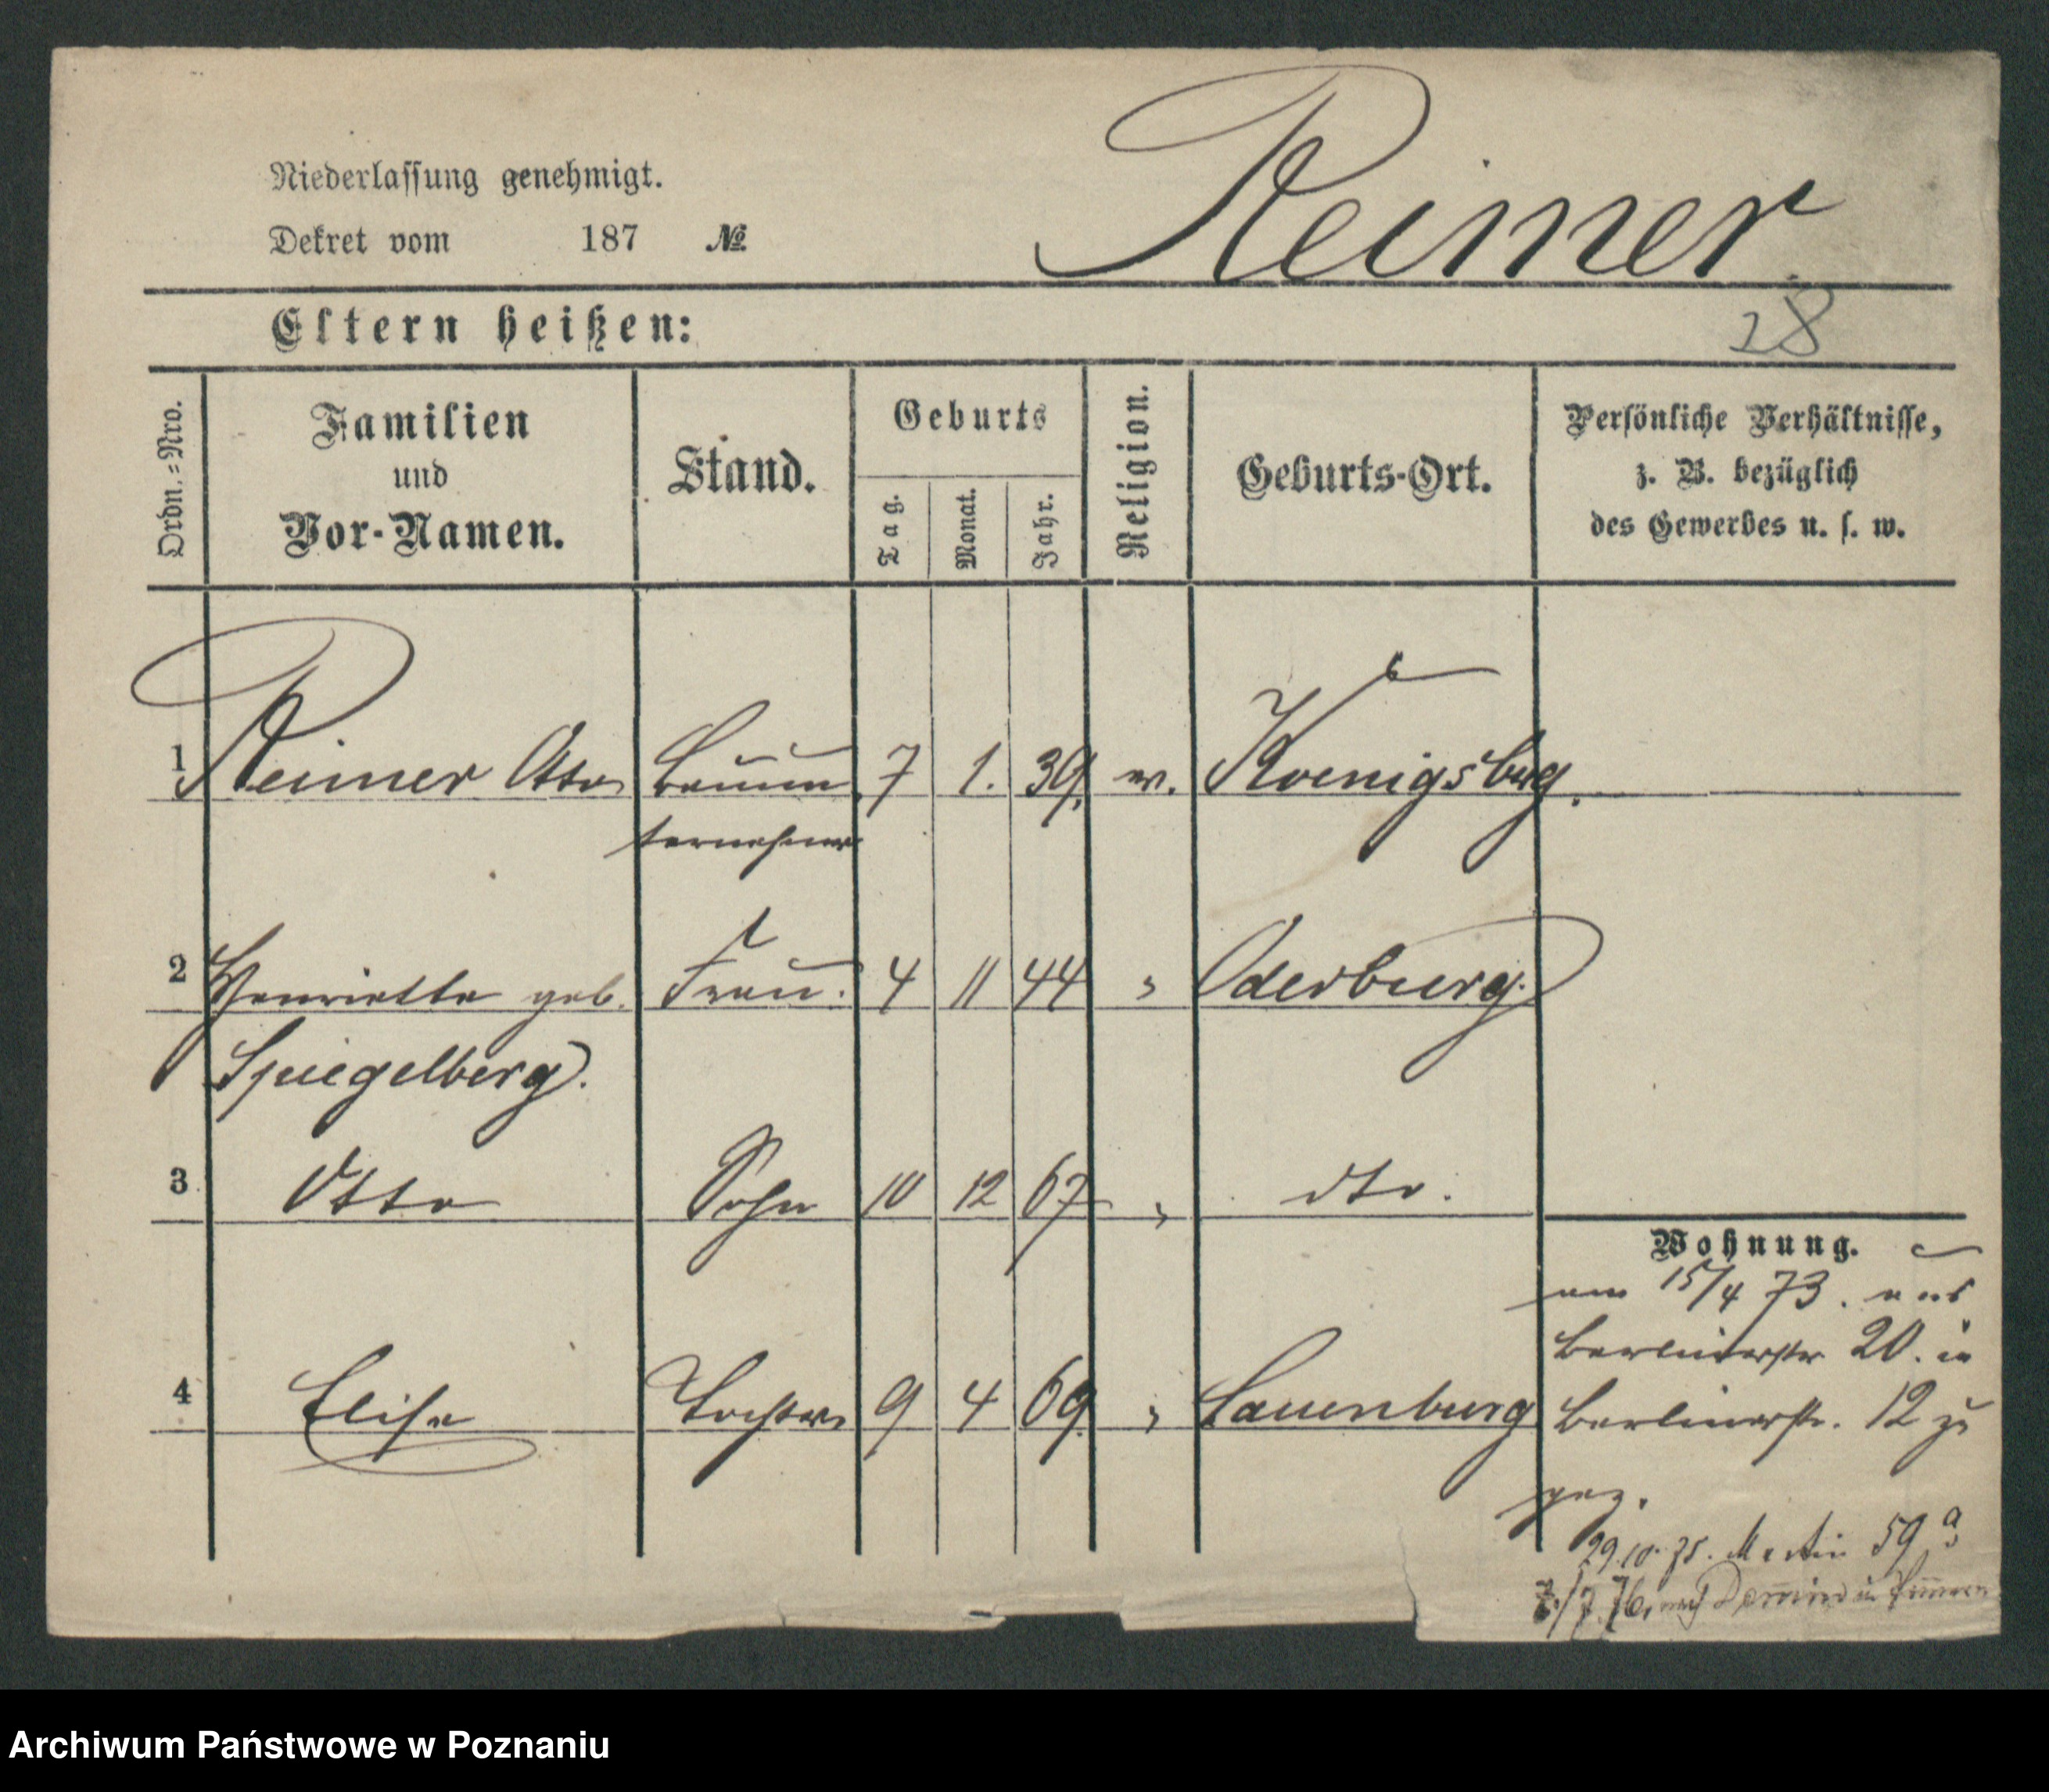 Reimer
Niederlassung genehmigt.
Dekret vom 187 №
Eltern heißen:
28
Ordn.=Nro.
Familien
und
Vor-Namen.
Stand.
Geburts
Tag.
Monat.
Jahr.
Religion.
Geburts-Ort.
Persönliche Verhältnisse,
z. B. bezüglich
des Gewerbes u. s. w.
1 Reimer Otto Bauun 7 1. 39. ev. Koenigsberg.
ternehmer
2 Henriette geb. Frau. 4 11 44 " Oderburg.
Spiegelberg.
3 Otto Sohn 10 12 67 " dto.
Wohnung.
am 15/4 73. aus
Berlinerstr 20. in
4 Elise Tochter 9 4 69. " Lauenburg Berlinerstr. 12 zu
gez.
29.10.75. Martin 59a
7/7. 76. nach in
Archiwum Państwowe w Poznaniu